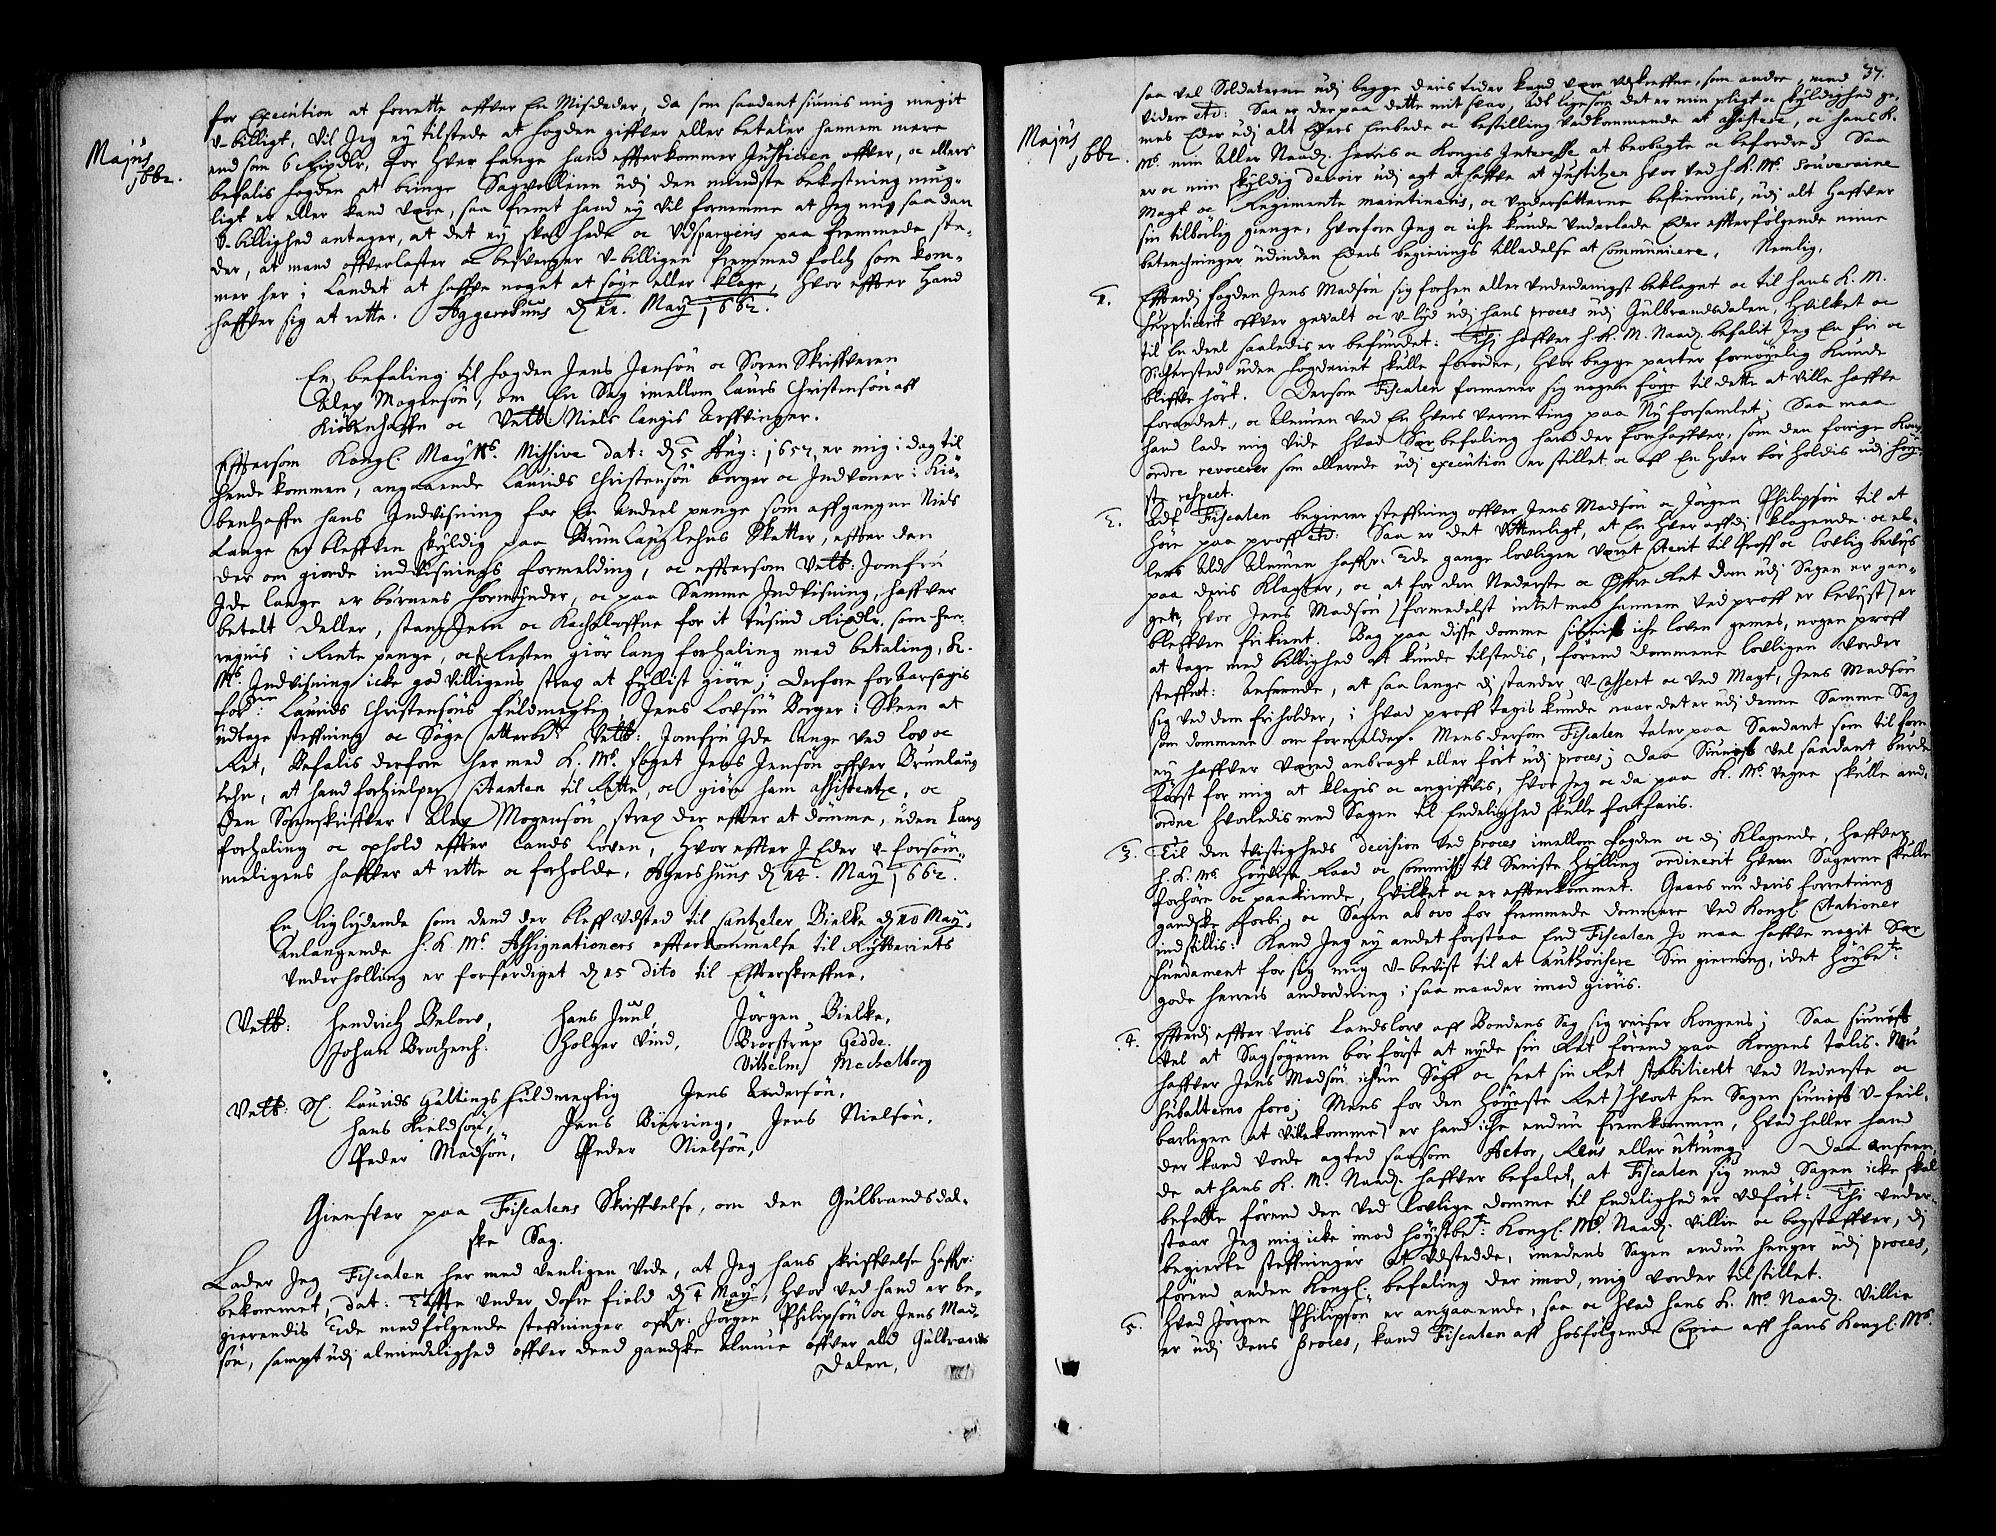 Majus
1662.
for Execution at forrette offver En Misdeder, da som saadant siunis mig megit
U-billigt, Vil Jeg ey tilstede at fogden giffver eller betaler hannem mere
end som 6 Rixdlr. for hver fange hand effterkommer Justicien offver, oc ellers
befalis fogden at bringe Sagvolleren udj den mindste bekostning mug-
ligt er eller kand være, saa fremt hand ey vil fornemme at Jeg mig saadan
U-billighed antager, at det ey skal hede oc Udspargeris paa fremmede ste-
der, at mand offverlaster oc besverger U-billigen fremmed folch som kom-
mer her i Landet at haffve noget at søge eller klage, Hvor effter Hand
haffver sig at rette. Aggershuus d. 12. May 1662.
En befaling til fogden Jens Jensøn oc Soren Skriffveren
Alex Mogensøn, om En Sag imellom Laurs Christensøn aff
Kiøbenhaffn oc Velb: Niels Langis Arffvinger.
Efftersom Kongl. Maytts. Missive dat: d. 5 Aug: 1657, er mig i dag til
hende kommen, angaaende Laurids Christensøn borger oc Indvoner i Kiø-
benhaffn hans Indvisning for En andeel penge som affgangne Niels
Lange er bleffven skyldig paa Brunlauglehns Skatter, effter den
der om giorde indvisnings formelding, oc effttersom Velb: Jomfru
Ide Lange er børnens formynder, oc paa Samme Indvisning, haffver
betalt Deller, stangJern oc Kachelloffne for it tusind Rixdlr, som her-
regnis i Rente penge, oc Resten giør lang forhaling med betaling, K.
Ms. Indvisning icke godvilligens strax at fyllist giøre; Derfore foraarsagis
for: Laurids Christensøns fuldmegtig Jens Lovsøn Borger i Skeen at
udtage steffning oc Søge Velb: Jomfru Ide Lange ved Lov oc
Ret, Befalis derfore her med K. Ms. foget Jens Jensøn offver Brunlaug
Lehn, at hand forhielper Citanten til Rette, oc giøre ham assistentze, oc
den Sorenskriffver Alex Mogensøn strax der effter at dømme, uden Lang
forhaling oc ophold effter Lands Loven, Hvor effter I Eder U-forsøm-
meligens haffver at rette oc forholde, Agershuus d. 14. May 1662.
En liglydende som dend der bleff udsted til Cantzeler Bielke d. 10 May.
Anlangende H. K. Ms. Assignationers effterkommelse til Rytteriets
Underholling er forferdiget d. 15 dito til Effterskreffne,
Velb: Hendrich Below, Hans Juul Jørgen Bielke,
Johan Brochenh. Holger Vind, Brostrup Gedde.
Vilhelm Mechelborg
Velb: Sl. Laurids Galtings fuldmegtig Jens Andersøn,
Hans Kieldsøn, Jens Bierring, Jens Nielsøn,
Peder Madsøn, Peder Nielsøn,
Giensvar paa Fiscalens Skriffvelse, om den Gulbrandsdal-
ske Sag.
Lader Jeg Fiscalen her med venligen vide, at Jeg hans skriffvelse haffr.
bekommet, dat: Toffte under Dofre field d. 4 May, Hvor ved hand er be-
gierendis Tvde medfølgende steffninger offr: Jørgen Philipsøn oc Jens Mad-
søn, sampt udj almindelighed offver dend gandske Almue offver ald Gulbrands
Dalen,
37.
Majus
1662.
saa vel Soldaterne udj begge deris tider kand være udskreffne, som andre, med
videre etc: Saa er der paa dette mit svar, Adt ligesom det er min pligt oc skyldighed ge-
mes Eder udj alt Eders Embede oc bestilling vedkommende at assistere, oc hans K.
Ms. min Aller Naad. Herris oc Kongis Interesse at beobagte oc befordre; Saa
er oc min skyldig devoir udj agt at haffve at Justitzen Hvor ved H. K. Ms. Souveraine
Magt oc Regimente maintineris, oc Undersatterne beskiermis, udj alt haffver
sin tilbørlig gienge, Hvorfore Jeg oc iche kunde underlade Eder effterfølgende mine
betenchninger udinden Eders begierings tilladelse at Communicere, Nemlig,
1. Effterdj fogden Jens Madsøn sig forhen aller underdanigst beklaget oc til hans K. M.
suppliceret offver gevalt oc U-lyd udj hans proces udj Gulbrandsdalen, Hvilket oc
til En deel saaledis er befundet: Thj haffver H. K. M. Naad. befalit Jeg En fri oc
Sichersted uden fogderiet skulle forordne, Hvor begge parter fornøyelig kunde
bliffve hørt. Dersom Fiscalen formener sig nogen føye til dette at ville haffve
forandret, oc Almuen ved En hvers verneting paa Ny forsamlet; Saa maa
hand lade mig vide hvad Sær befaling hand der for haffver, som den forrige Kong.
ordre revocerer som allerede udj execution er stillet oc aff En hver bør holdis udj høye-
ste respect.
2. Adt Fiscalen begierer steffning offver Jens Madsøn oc Jørgen Philipsøn til at
høre paa proff etc: Saa er det vitterligt, at En hver aff dj klagende oc el-
lers Ald Almuen haffr. Tvde gange lovligen været steent til Proff oc Lovlig beviis
paa deris Klagter, oc at for den Nederste oc Øffre Ret dom udj Sagen er gan-
gen, Hvor Jens Madsøn (formedelst intet mod hannem ved proff er bevist) er
bleffven frikient. Bag paa disse domme siunis iche loven gemes, nogen proff
at tage med billighed at kunde tilstedis, førend dommene lovligen vorder
steffnt: Anseende, at saa lenge dj stander U-Cassert oc ved Magt, Jens Madsøn
sig ved dem friholder, i hvad proff tagis kunde naar det er udj denne Samme Sag
som dommene om formelder. Mens dersom Fiscalen taler paa Saadant som til forn
ey haffver været anbragt eller ført udj proces; Daa Siunis vel saadant burde
først for mig at klagis oc angiffvis, Hvor Jeg oc da paa K. Ms vegne skulle and-
ordne Hvorledis med Sagen til Endelighed skulle fortfaris.
3. Til den tvistigheds decision ved proces imellom fogden oc dj Klagende, haffver
H. K. Ms Høyviise Raad oc Commiss: til Seniste Hylling ordinerit Hvem Sagerne skulle
forhøre oc paakiende, Hvilket oc er effterkommet. Gaaes nu deris forretning
gandske forbi, oc Sagen ab ovo for fremmede dommere ved Kongl. Citationer
indstillis: Kand Jeg ey andet forstaa End Fiscalen jo maa haffve nogit Sær
fundament for sig mig U-bevist til at authorisere Sin gierning, idet Høybete:
gode Herris anordning i saa maader imod giøris.
4. Effterdj effter Voris Landslow aff Bondens Sag sig reiser Kongens; Saa siunis
vel at Sagsøgeren bør først at nyde sin Ret førend paa Kongens talis. Nu
haffver Jens Madsøn ichun Søgt oc seet sin Ret stabilieret ved Nederste oc
subalterno foro; Mens for den Høyeste Ret (hvort hen Sagen siunis U-feil-
barligen at ville komme) er hand iche endnu fremkommen, Hvad heller hand
der kand vorde agted saasom Actor, Reus eller utrumq; Daa Anseen-
de at hans K. M. Naad. haffver befalet, at Fiscalen sig med Sagen icke skal
befatte førend den ved lovlige domme til Endelighed er udført: Thi under-
staar Jeg mig icke imod høystbete: Kongl. Ms. Naad. villie oc bogstaffver, dj
begierte steffninger at udstedde, imedens Sagen endnu henger udj proces,
førend anden Kongl. befaling der imod, mig vorder tilstillet.
5. Hvad Jørgen Philipsøn er angaaende, saa oc hvad hans K. Ms Naad. Villie
er udj dens proces, kand Fiscalen aff hosfølgende Copia aff hans Kongl. Ms.